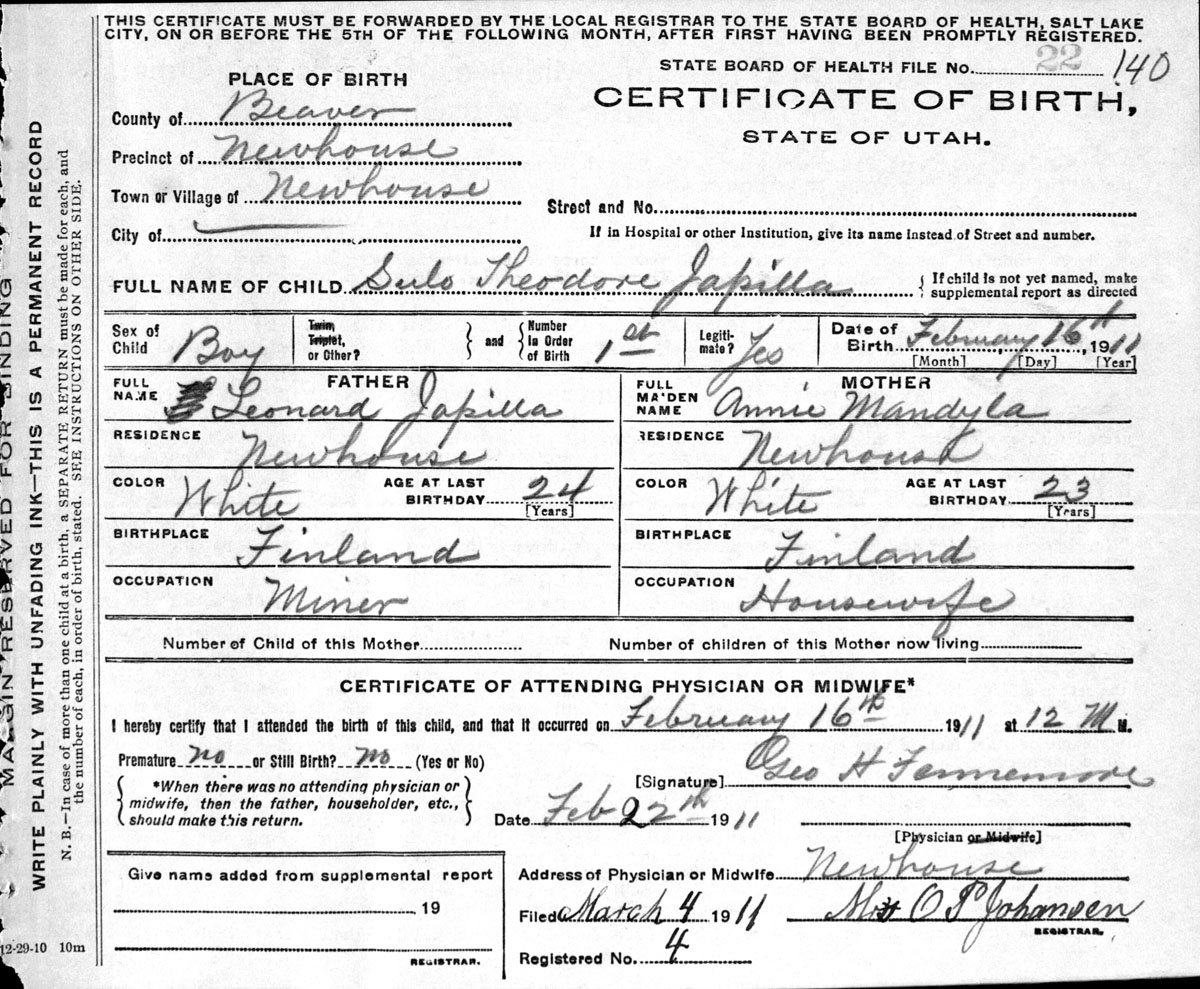 THIS CERTIFICATE MUST BE FORWARDED BY THE LOCAL REGISTRAR TO THE STATE BOARD OF HEALTH, SALT LAKE
CITY, ON OR BEFORE THE 5TH OF THE FOLLOWING MONTH, AFTER FIRST HAVING BEEN PROMPTLY REGISTERED.
STATE BOARD OF HEALTH FILE No. 22 140
CERTIFICATE OF BIRTH,
STATE OF UTAH.
PLACE OF BIRTH
County of Beaver
Precinct of Newhouse
Town or Village of Newhouse
Street and No.
City of
If in Hospital or other Institution, give its name instead of Street and number.
FULL NAME OF CHILD Sulo Theodore Japilla
{ If child is not yet named, make
supplemental report as directed
Sex of Child Boy
Twin, Triplet, or Other? } and { Number in Order of Birth 1st
Legitimate? Yes
Date of Birth February 16th, 1911
[Month] [Day] [Year]
FATHER
FULL NAME Leonard Japilla
RESIDENCE Newhouse
COLOR White AGE AT LAST BIRTHDAY 24 [Years]
BIRTHPLACE Finland
OCCUPATION Miner
MOTHER
FULL MAIDEN NAME Annie Mandyla
RESIDENCE Newhouse
COLOR White AGE AT LAST BIRTHDAY 23 [Years]
BIRTHPLACE Finland
OCCUPATION Housewife
Number of Child of this Mother
Number of children of this Mother now living
CERTIFICATE OF ATTENDING PHYSICIAN OR MIDWIFE*
I hereby certify that I attended the birth of this child, and that it occurred on February 16th 1911 at 12 M M.
Premature no or Still Birth? no (Yes or No)
[Signature] Geo H Fennemore
{ *When there was no attending physician or
midwife, then the father, householder, etc.,
should make this return. }
Date Feb 22th 1911
[Physician or Midwife]
Address of Physician or Midwife Newhouse
Filed March 4 1911 Mrs O P Johansen
REGISTRAR.
Registered No. 4
Give name added from supplemental report
19
REGISTRAR.
12-29-10 10m
MARGIN RESERVED FOR BINDING
WRITE PLAINLY WITH UNFADING INK—THIS IS A PERMANENT RECORD
N. B.—In case of more than one child at a birth, a SEPARATE RETURN must be made for each, and
the number of each, in order of birth, stated. SEE INSTRUCTIONS ON OTHER SIDE.